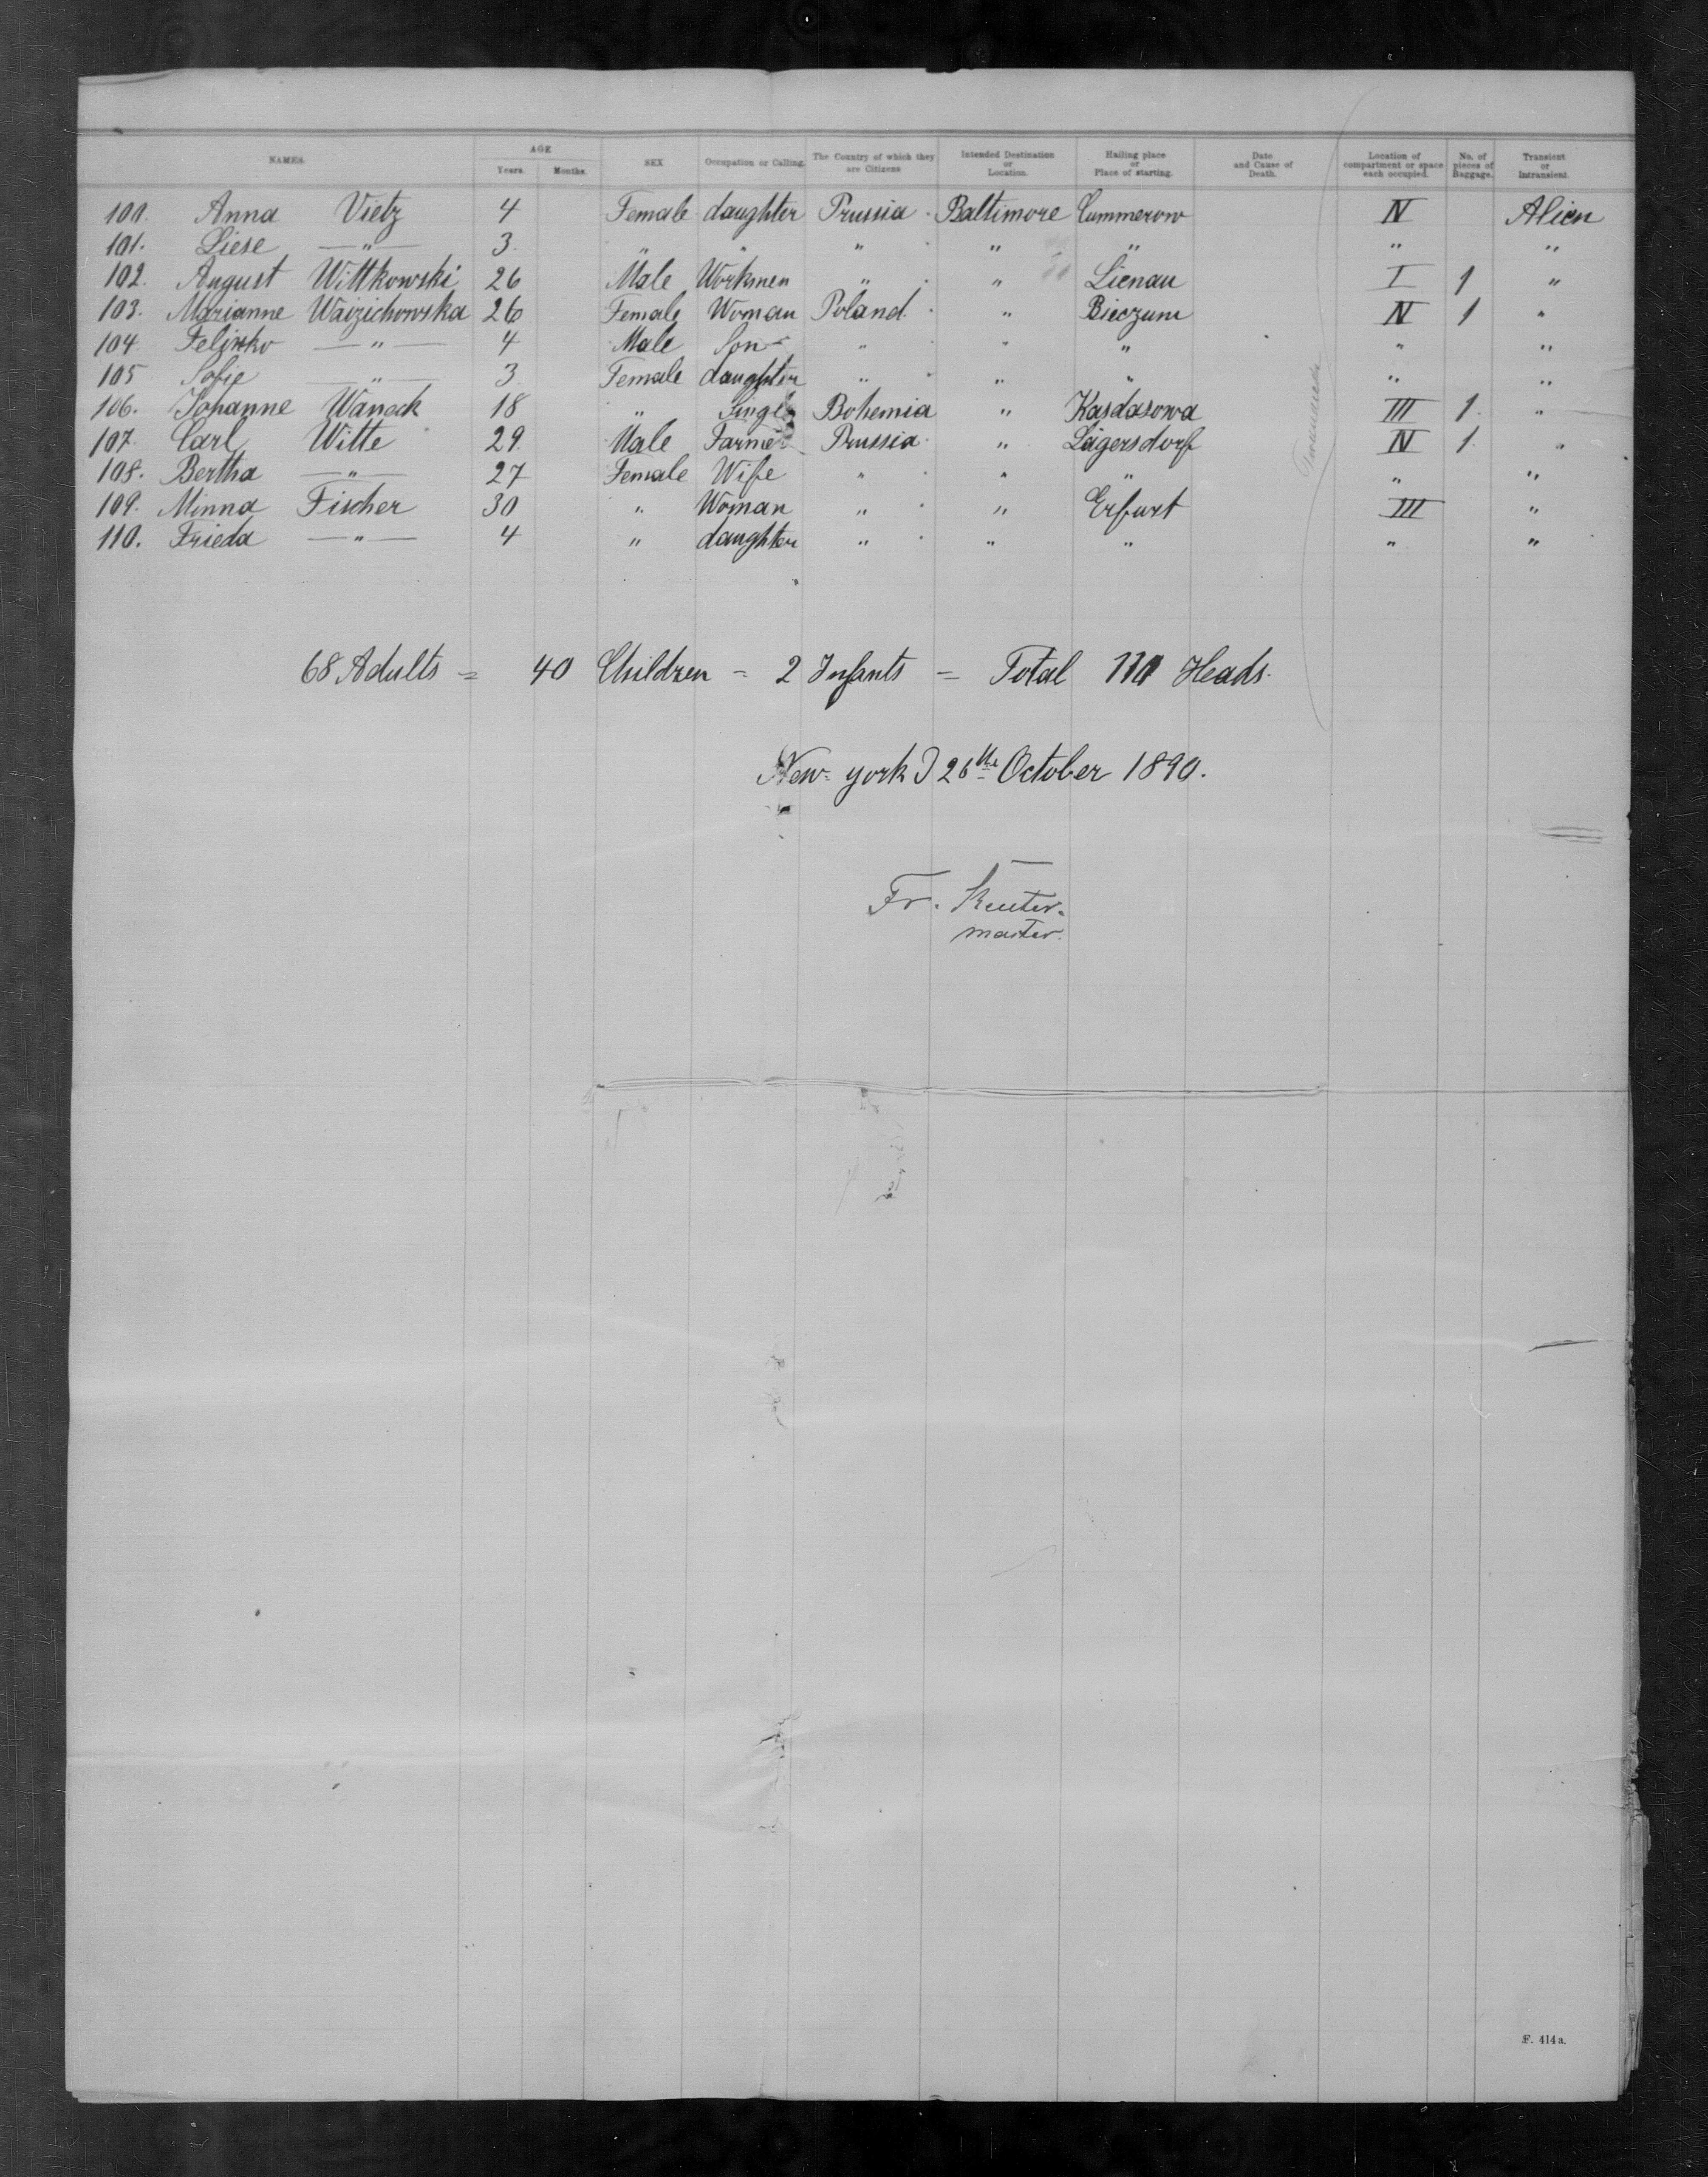 NAMES. AGE Years. Months. SEX Occupation or Calling. The Country of which they are Citizens Intended Destination or Location. Hailing place or Place of starting. Date and Cause of Death. Location of compartment or space each occupied. No. of pieces of Baggage. Transient or Intransient.
100. Anna Vietz 4 Female daughter Prussia Baltimore Cummerow IV Alien
101. Liese — " — 3 " " " " " " "
102. August Wittkowski 26 Male Workmen " " Lienau I 1 "
103. Marianne Waizichowska 26 Female Woman Poland " Bieczum IV 1 "
104 — " — 4 Male Son " " " " "
105 Sofie — " — 3 Female daughter " " " " "
106. Johanne Waneck 18 " Single Bohemia " Kasdasowa III 1 "
107 Carl Witte 29 Male Farmer Prussia " Lägersdorf IV 1 "
108. Bertha — " — 27 Female Wife " " " " "
109. Minna Fischer 30 " Woman " " Erfurt III "
110. Frieda — " — 4 " daughter " " " " "
68 Adults = 40 Children = 2 Infants = Total 110 Heads.
New york 26th October 1890.
Fr. Reuter.
master.
F. 414 a.